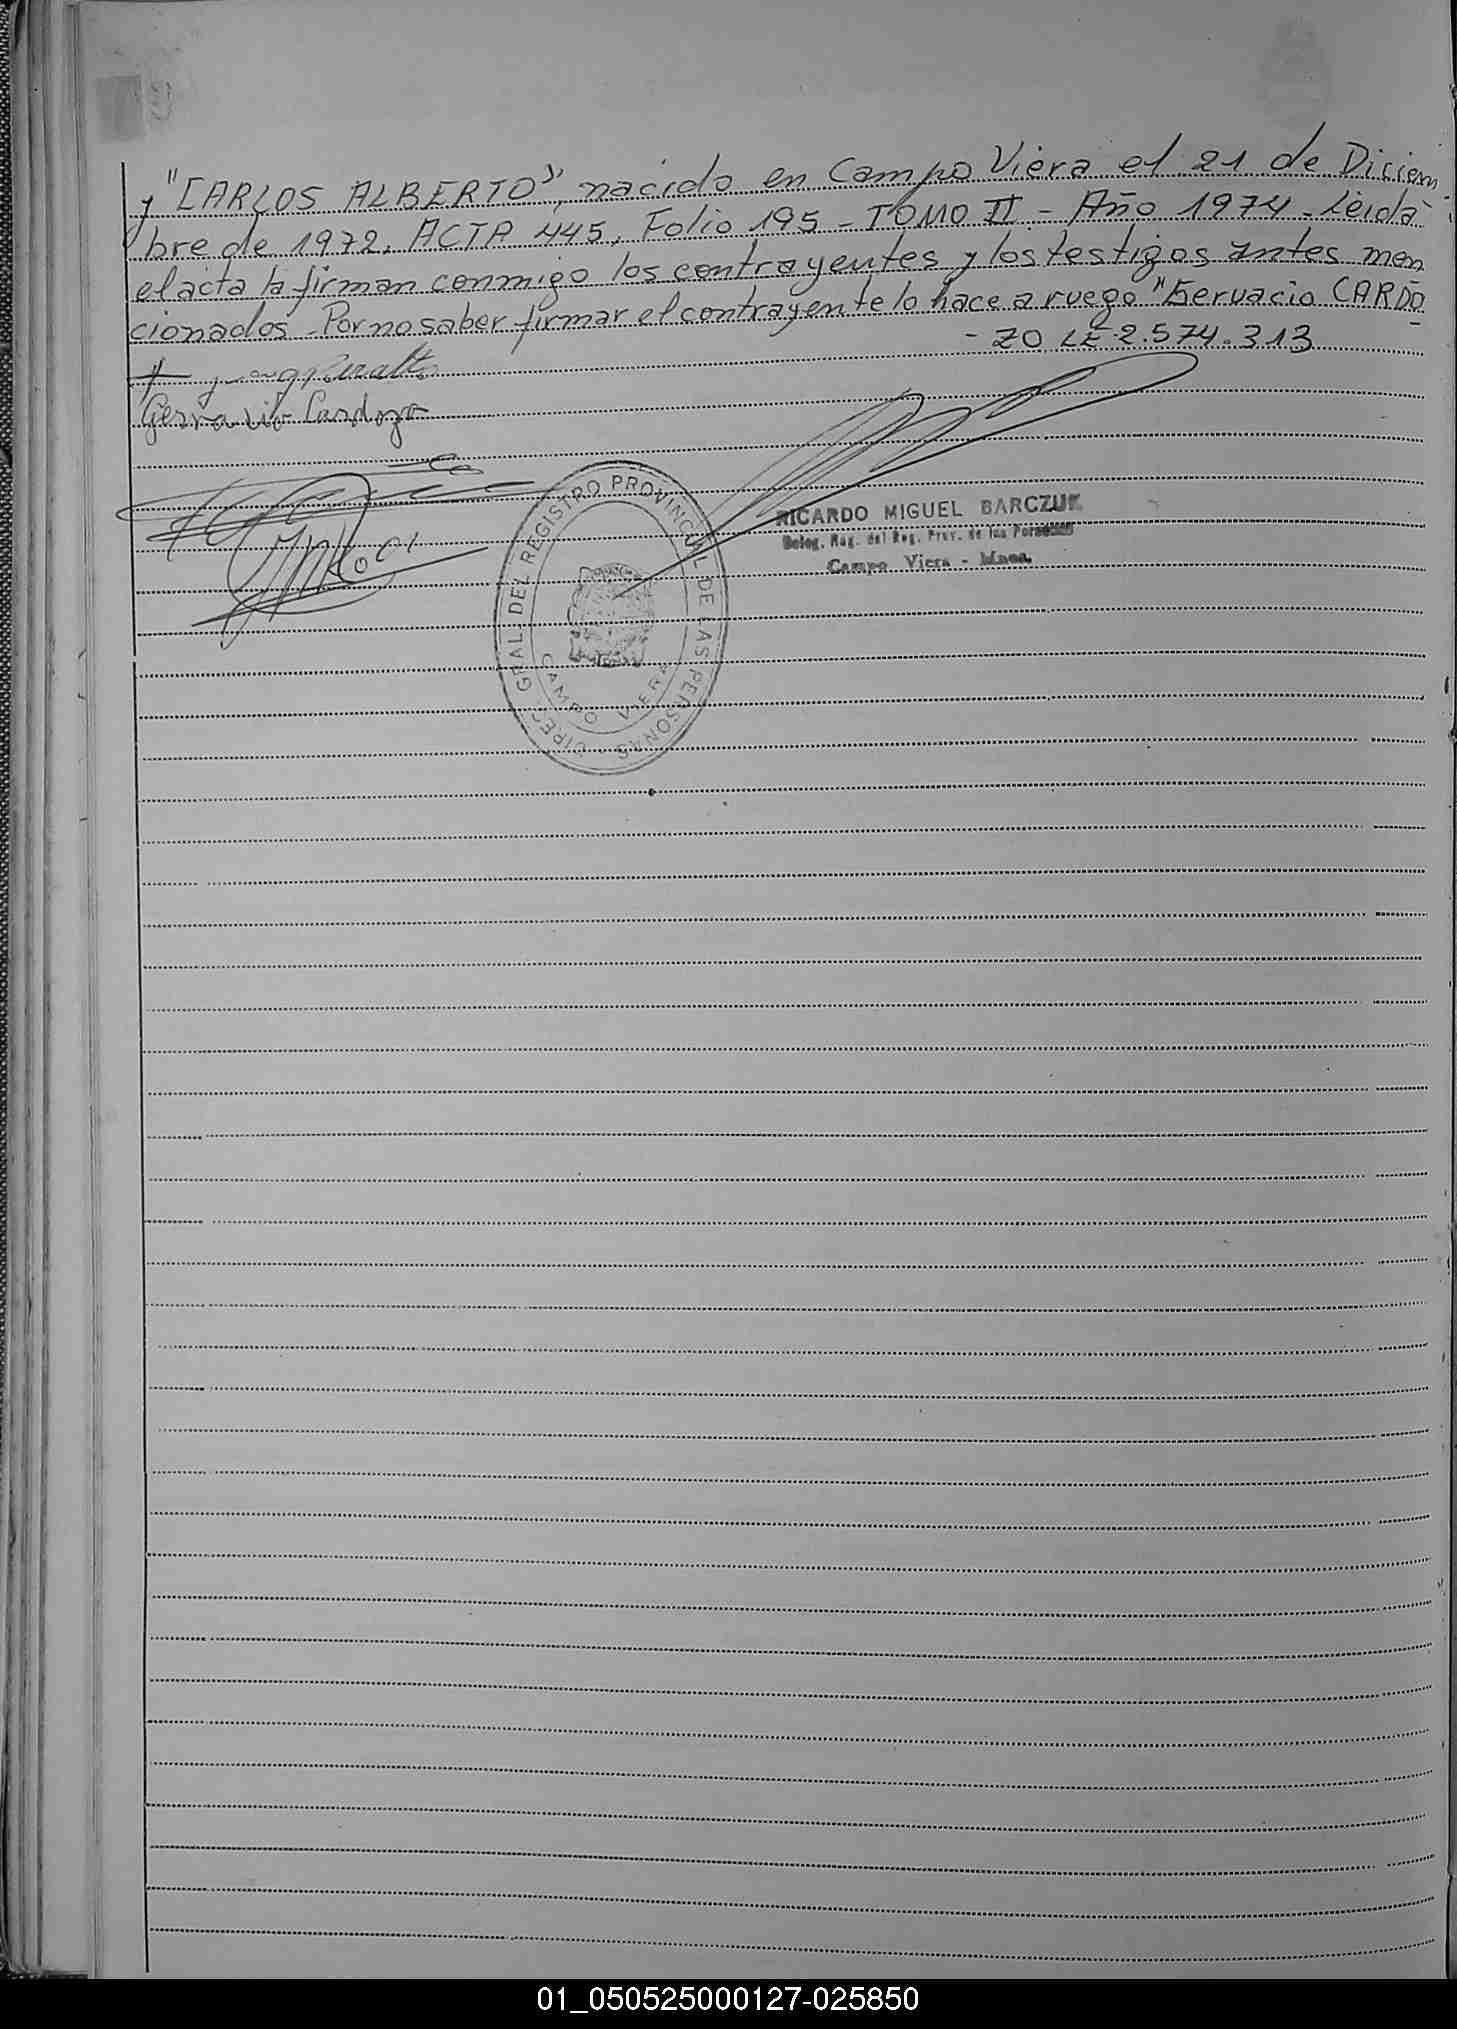 y "CARLOS ALBERTO", nacido en Campo Viera el 21 de Diciem
bre de 1972, ACTA 445, Folio 195 - TOMO II - Año 1974 - Leida
el acta la firman conmigo los contrayentes y los testigos antes men
cionados - Por no saber firmar el contrayente lo hace a ruego "Gervacio CARDO
- ZO LE 2.574.313
Gervasio Cardozo
RICARDO MIGUEL BARCZUK
Deleg. Reg. del Reg. Prov. de las Personas
Campo Viera - Mnes.
DIREC. GRAL. DEL REGISTRO PROVINCIAL DE LAS PERSONAS
CAMPO VIERA
01_050525000127-025850